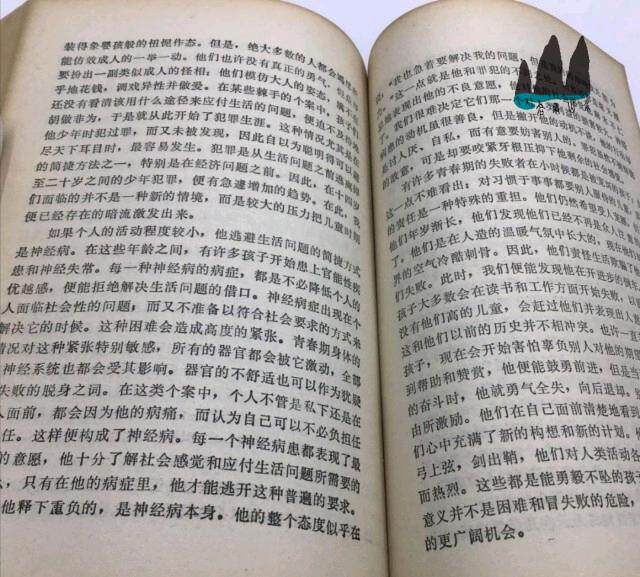 装得象婴孩般的忸怩作态。但是，绝大多数的人都会
能仿效成人的一举一动。他们也许没有真正的勇气，但
要扮出一副类似成人的怪相。他们模仿大人的姿态，满不在
乎地花钱，调戏异性并做爱。在某些棘手的个案中，孩子
还没有看清该用什么途径来应付生活的问题，便迫不及待地
胡做非为，于是就从此开始了犯罪生涯。这种情况尤其是在
他少年时犯过罪，而又未被发现，因此自以为聪明得可以瞒
尽天下耳目时，最容易发生。犯罪是从生活问题之前逃避掉
的简捷方法之一，特别是在经济问题之前。因此，在十四岁
至二十岁之间的少年犯罪，便有急遽增加的趋势。在此，我
们面临的并不是一种新的情境，而是较大的压力把儿童时期
便已经存在的暗流激发出来。
如果个人的活动程度较小，他逃避生活问题的简捷方式
是神经病。在这些年龄之间，有许多孩子开始患上官能性病
患和神经失常。每一种神经病的病症，都是不必降低个人的
优越感，便能拒绝解决生活问题的借口。神经病症出现在个
人面临社会性的问题，而又不准备以符合社会要求的方式来
解决它的时候。这种困难会造成高度的紧张。青春期身体的
情况对这种紧张特别敏感，所有的器官都会被它激动，全部
神经系统也都会受其影响。器官的不舒适也可以作为犹疑
失败的脱身之词。在这类个案中，个人不管是私下还是在
人面前，都会因为他的病痛，而认为自己可以不必负担任
任。这样便构成了神经病。每一个神经病患都表现了最
的意愿，他十分了解社会感觉和应付生活问题所需要的
，只有在他的病症里，他才能逃开这种普遍的要求。
他释下重负的，是神经病本身。他的整个态度似乎在
“我也急着要解决我的问题，但
这一点就是他和罪犯的不
地表现出他的不良意愿，
我们很难决定它们那一
的动机虽很善良，但是撇开他的动机不
得讨人厌、自私，而有意要妨害别人的
的敌意，可是却要咬紧牙根压抑下他剩余的社会感觉
有许多青春期的失败者在小时候都是被
这一点不难看出：对习惯于事事都要别人服侍的儿童
的责任是一种特殊的重担。他们仍然希望受人宠爱
们年岁渐长，他们发现他们已经不再是众人
了，他们是在人造的温暖气氛中长大的，现在
界的空气冷酷刺骨。因此，他们责怪生活欺骗
们失败。此时，我们便能发现他在开进步的倒车
孩子大多数会在读书和工作方面开始失败，以
没有他们高的儿童，会赶过他们并表现出人
这和他们以前的历史并不相冲突。也许一直
孩子，现在会开始害怕辜负别人对他的期望
到帮助和赞赏，他便能鼓勇前进，但是当
的奋斗时，他就勇气全失，向后退却。
由所激励。他们在自己面前清楚地看到
们心中充满了新的构想和新的计划。
弓上弦，剑出鞘，他们对人类活动各
而热烈。这些都是能勇毅不坠的孩子
意义并不是困难和冒失败的危险，
的更广阔机会。